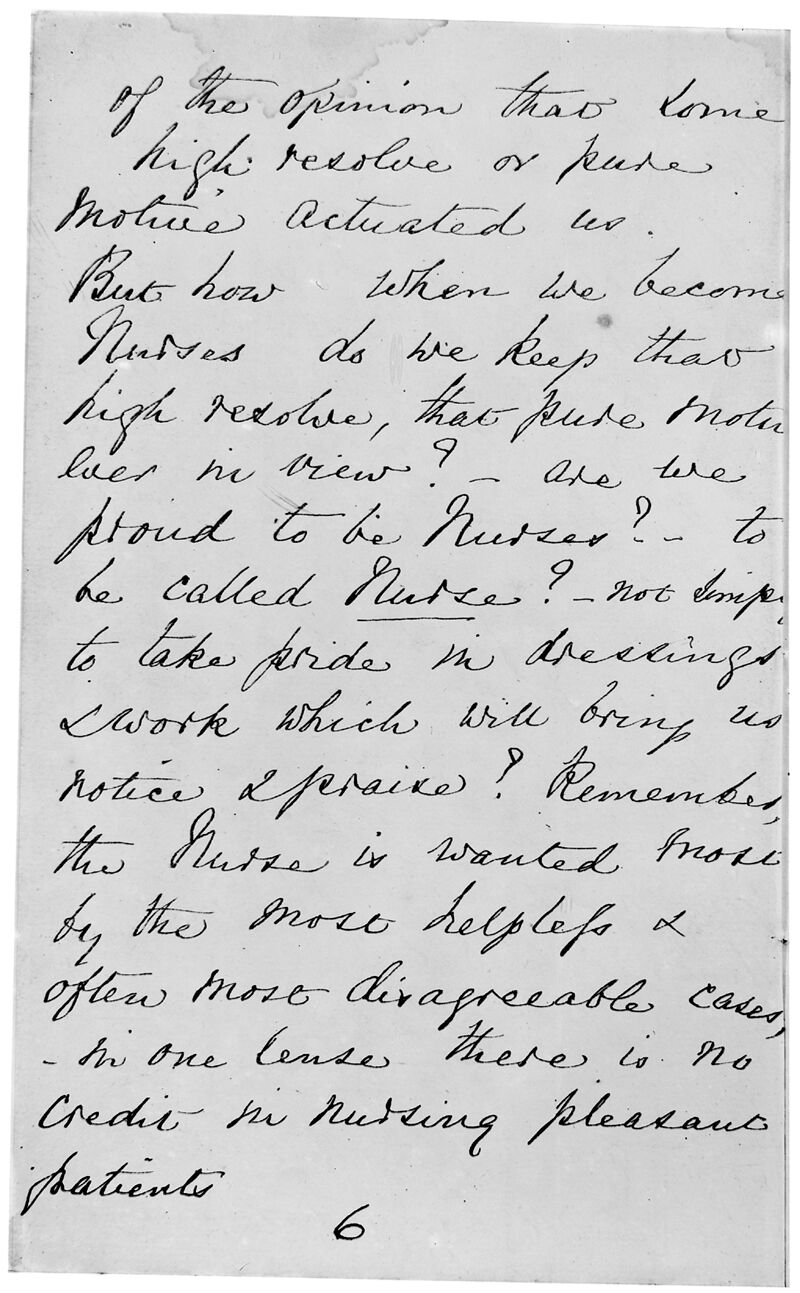 of the opinion that some
high resolve or pure
motive actuated us.
But how when we become
Nurses do we keep that
high resolve, that pure motiv
ever in view? – are we
proud to be Nurses? – to
be called Nurse? – not simpy
to take pride in dressings
& work which will bring us
notice & praise? Remember,
the Nurse is wanted most
by the most helpless &
often most disagreeable cases,
– in one sense there is no
credit in nursing pleasant
patients
6